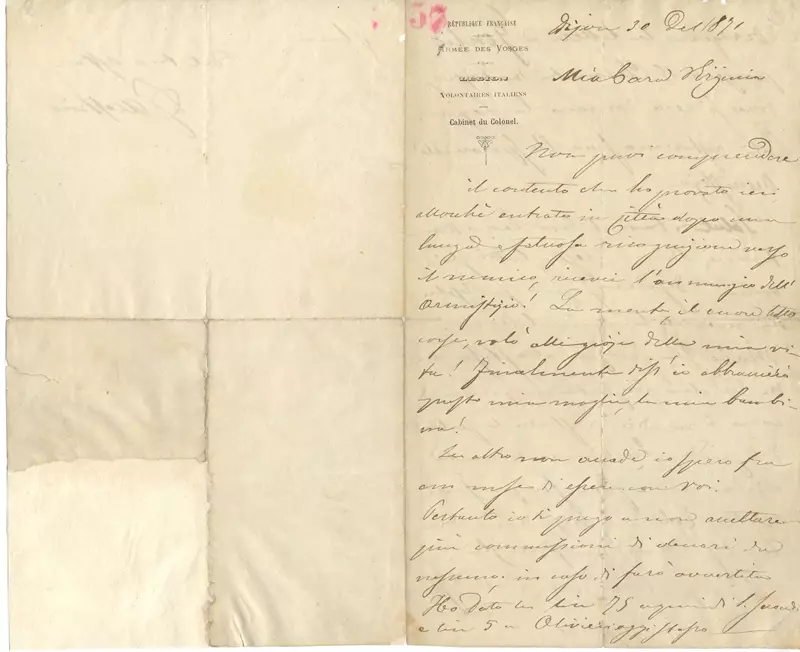 75
RÉPUBLIQUE FRANÇAISE
ARMÉE DES VOSGES
LÉGION
VOLONTAIRES ITALIENS
Cabinet du Colonel.
Dijon 30 1871
Mia Cara Virginia
Non puoi comprendere
il contento che ho provato ieri
allorchè entrato in Città dopo una
lunga e faticosa ricognizione verso
il nemico, ricevei l'annunzio dell'
Armistizio! La mente, il cuore tutto
corse, volò alle gioje della mia vi-
ta! Finalmente diss' io abbraccierò
presto mia moglie, la mia bambi-
na!
Se altro non accade, io spero fra
un mese di essere con voi.
Pertanto io ti prego a non accettare
più commissioni di denari da
nessuno. in caso ti farò avvertita
Ho dato le lire 75 a
e lire 5 a Olivieri oggi stesso